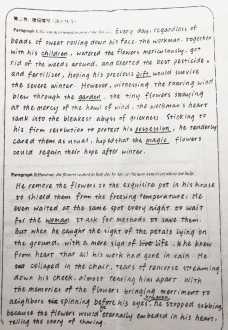 Paragraph 1: Every day, regardless of
beads of sweat rolling down his face, the workman, together
with his children, watered the flowers meticulously, got
rid of the weeds around, and exerted the best pesticide
and fertiliser, hoping his precious gift would survive
the severe winter. However, witnessing the roaring wind
blew through the garden, the tiny flowers swaying
at the mercy of the howl of wind, the workman's heart
sank into the bleakest abyss of grievness. Sticking to
his firm resolution to protect his possession, he tenderly
cared them as usual, hoped that the magic flowers
could regain their hope after winter.
Paragraph 2:
He remove the flowers to the exquisite pot in his house
to shield them from the freezing temperature. He
even waited at the same spot every night to wait
for the woman to ask for methods to save them.
But when he caught the sight of the petals lying on
the ground, with a mere sign of life, he knew
from heart that all his work had gone in vain. He
collapsed in the chair, tears of remorse streaming
down his cheek, almost tearing him apart. With
the memories of the flowers bringing merriment to
neighbors spinning before his eyes, he stopped sobbing,
because the flowers would eternally embeded in his heart,
telling the story of sharing.